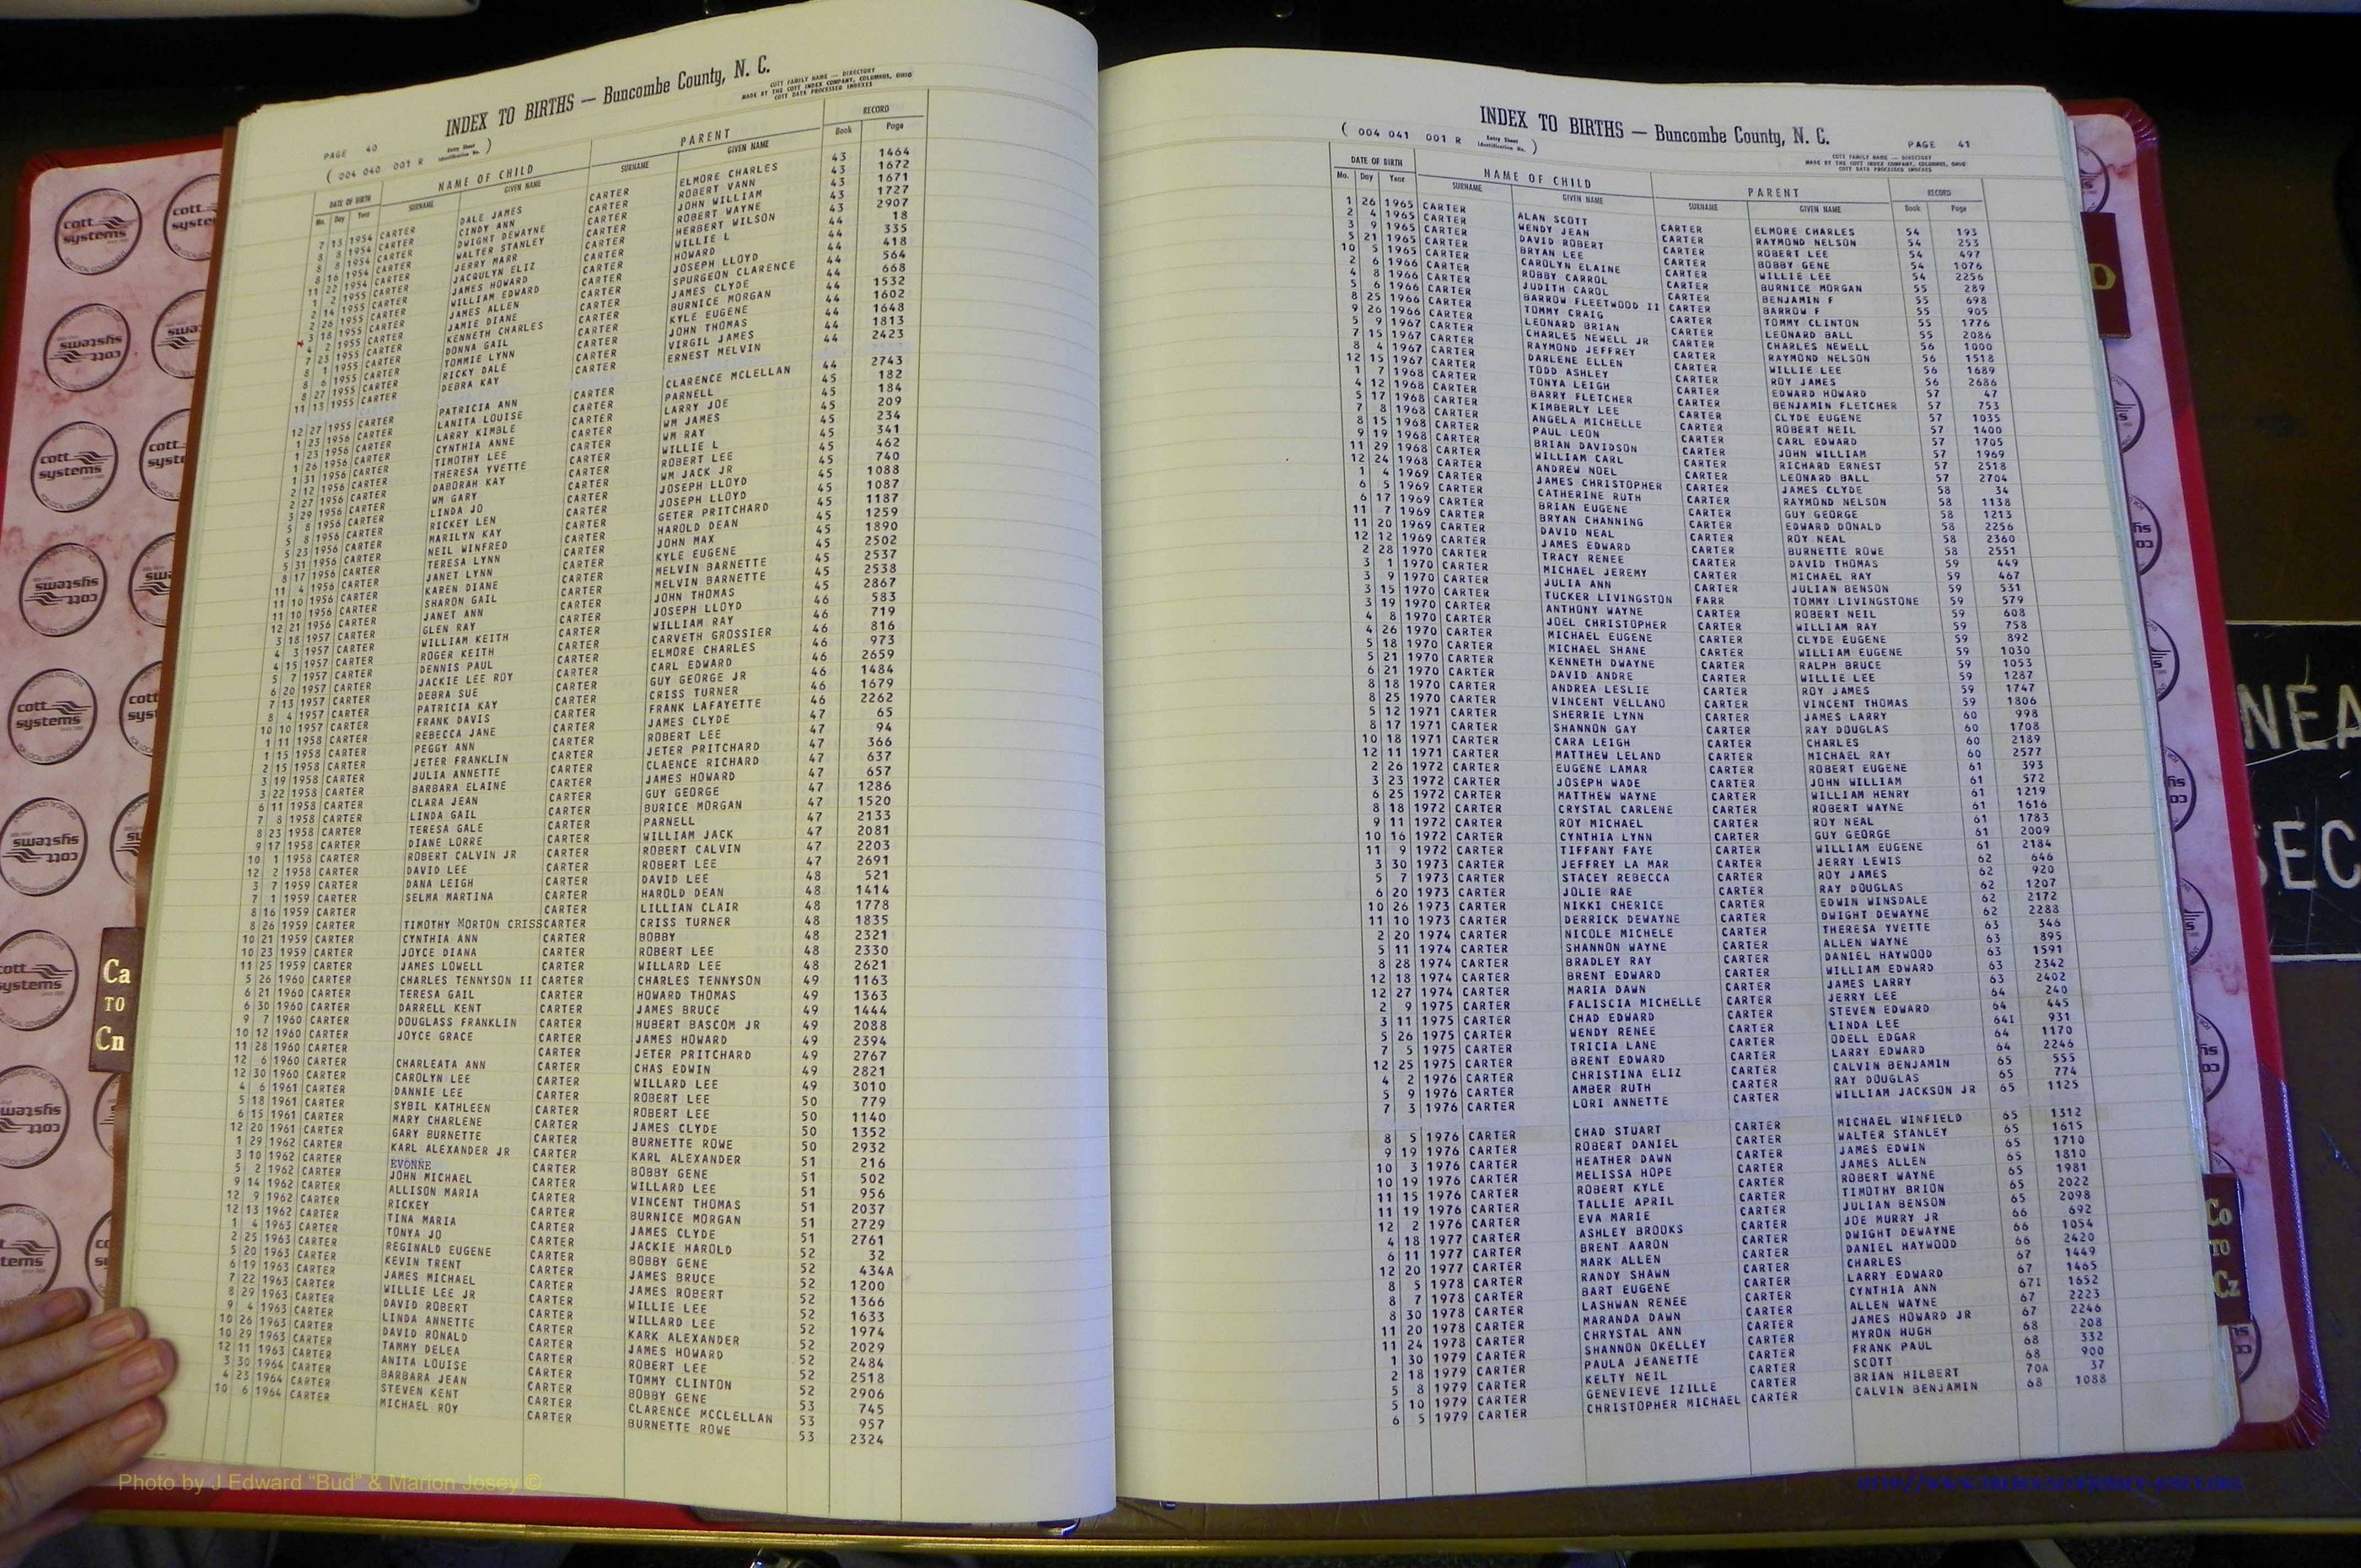 INDEX TO BIRTHS — Buncombe County, N. C.
COTT FAMILY NAME — DIRECTORY
MADE BY THE COTT INDEX COMPANY, COLUMBUS, OHIO
COTT DATA PROCESSED INDEXES
PAGE 40
( 004 040 001 R Entry Sheet Identification No. )
DATE OF BIRTH NAME OF CHILD PARENT RECORD
Mo. Day Year SURNAME GIVEN NAME SURNAME GIVEN NAME Book Page
7 13 1954 CARTER DALE JAMES CARTER ELMORE CHARLES 43 1464
8 8 1954 CARTER CINDY ANN CARTER ROBERT VANN 43 1672
8 8 1954 CARTER DWIGHT DEWAYNE CARTER JOHN WILLIAM 43 1671
8 16 1954 CARTER WALTER STANLEY CARTER ROBERT WAYNE 43 1727
11 22 1954 CARTER JERRY MARR CARTER HERBERT WILSON 43 2907
1 2 1955 CARTER JACQULYN ELIZ CARTER WILLIE L 44 18
2 14 1955 CARTER JAMES HOWARD CARTER HOWARD 44 335
2 26 1955 CARTER WILLIAM EDWARD CARTER JOSEPH LLOYD 44 418
3 18 1955 CARTER JAMES ALLEN CARTER SPURGEON CLARENCE 44 564
4 2 1955 CARTER JAMIE DIANE CARTER JAMES CLYDE 44 668
7 23 1955 CARTER KENNETH CHARLES CARTER BURNICE MORGAN 44 1532
8 1 1955 CARTER DONNA GAIL CARTER KYLE EUGENE 44 1602
8 6 1955 CARTER TOMMIE LYNN CARTER JOHN THOMAS 44 1648
8 27 1955 CARTER RICKY DALE CARTER VIRGIL JAMES 44 1813
11 13 1955 CARTER DEBRA KAY CARTER ERNEST MELVIN 44 2423
12 27 1955 CARTER PATRICIA ANN CARTER CLARENCE MCLELLAN 44 2743
1 23 1956 CARTER LANITA LOUISE CARTER PARNELL 45 182
1 23 1956 CARTER LARRY KIMBLE CARTER LARRY JOE 45 184
1 26 1956 CARTER CYNTHIA ANNE CARTER WM JAMES 45 209
1 31 1956 CARTER TIMOTHY LEE CARTER WM RAY 45 234
2 12 1956 CARTER THERESA YVETTE CARTER WILLIE L 45 341
2 27 1956 CARTER DABORAH KAY CARTER ROBERT LEE 45 462
3 29 1956 CARTER WM GARY CARTER WM JACK JR 45 740
5 8 1956 CARTER LINDA JO CARTER JOSEPH LLOYD 45 1088
5 8 1956 CARTER RICKEY LEN CARTER JOSEPH LLOYD 45 1087
5 23 1956 CARTER MARILYN KAY CARTER GETER PRITCHARD 45 1187
5 31 1956 CARTER NEIL WINFRED CARTER HAROLD DEAN 45 1259
8 17 1956 CARTER TERESA LYNN CARTER JOHN MAX 45 1890
11 4 1956 CARTER JANET LYNN CARTER KYLE EUGENE 45 2502
11 10 1956 CARTER KAREN DIANE CARTER MELVIN BARNETTE 45 2537
11 10 1956 CARTER SHARON GAIL CARTER MELVIN BARNETTE 45 2538
12 21 1956 CARTER JANET ANN CARTER JOHN THOMAS 45 2867
3 18 1957 CARTER GLEN RAY CARTER JOSEPH LLOYD 46 583
4 3 1957 CARTER WILLIAM KEITH CARTER WILLIAM RAY 46 719
4 15 1957 CARTER ROGER KEITH CARTER CARVETH GROSSIER 46 816
5 7 1957 CARTER DENNIS PAUL CARTER ELMORE CHARLES 46 973
6 20 1957 CARTER JACKIE LEE ROY CARTER CARL EDWARD 46 2659
7 13 1957 CARTER DEBRA SUE CARTER GUY GEORGE JR 46 1484
8 4 1957 CARTER PATRICIA KAY CARTER CRISS TURNER 46 1679
10 10 1957 CARTER FRANK DAVIS CARTER FRANK LAFAYETTE 46 2262
1 11 1958 CARTER REBECCA JANE CARTER JAMES CLYDE 47 65
1 15 1958 CARTER PEGGY ANN CARTER ROBERT LEE 47 94
2 15 1958 CARTER JETER FRANKLIN CARTER JETER PRITCHARD 47 366
3 19 1958 CARTER JULIA ANNETTE CARTER CLAENCE RICHARD 47 637
3 22 1958 CARTER BARBARA ELAINE CARTER JAMES HOWARD 47 657
6 11 1958 CARTER CLARA JEAN CARTER GUY GEORGE 47 1286
7 8 1958 CARTER LINDA GAIL CARTER BURICE MORGAN 47 1520
8 23 1958 CARTER TERESA GALE CARTER PARNELL 47 2133
9 17 1958 CARTER DIANE LORRE CARTER WILLIAM JACK 47 2081
10 1 1958 CARTER ROBERT CALVIN JR CARTER ROBERT CALVIN 47 2203
12 2 1958 CARTER DAVID LEE CARTER ROBERT LEE 47 2691
3 7 1959 CARTER DANA LEIGH CARTER DAVID LEE 48 521
7 1 1959 CARTER SELMA MARTINA CARTER HAROLD DEAN 48 1414
8 16 1959 CARTER CARTER LILLIAN CLAIR 48 1778
8 26 1959 CARTER TIMOTHY MORTON CRISS CARTER CRISS TURNER 48 1835
10 21 1959 CARTER CYNTHIA ANN CARTER BOBBY 48 2321
10 23 1959 CARTER JOYCE DIANA CARTER ROBERT LEE 48 2330
11 25 1959 CARTER JAMES LOWELL CARTER WILLARD LEE 48 2621
5 26 1960 CARTER CHARLES TENNYSON II CARTER CHARLES TENNYSON 49 1163
6 21 1960 CARTER TERESA GAIL CARTER HOWARD THOMAS 49 1363
6 30 1960 CARTER DARRELL KENT CARTER JAMES BRUCE 49 1444
9 7 1960 CARTER DOUGLASS FRANKLIN CARTER HUBERT BASCOM JR 49 2088
10 12 1960 CARTER JOYCE GRACE CARTER JAMES HOWARD 49 2394
11 28 1960 CARTER CARTER JETER PRITCHARD 49 2767
12 6 1960 CARTER CHARLEATA ANN CARTER CHAS EDWIN 49 2821
12 30 1960 CARTER CAROLYN LEE CARTER WILLARD LEE 49 3010
4 6 1961 CARTER DANNIE LEE CARTER ROBERT LEE 50 779
5 18 1961 CARTER SYBIL KATHLEEN CARTER ROBERT LEE 50 1140
6 15 1961 CARTER MARY CHARLENE CARTER JAMES CLYDE 50 1352
12 20 1961 CARTER GARY BURNETTE CARTER BURNETTE ROWE 50 2932
1 29 1962 CARTER KARL ALEXANDER JR CARTER KARL ALEXANDER 51 216
3 10 1962 CARTER EVONNE CARTER BOBBY GENE 51 502
5 2 1962 CARTER JOHN MICHAEL CARTER WILLARD LEE 51 956
9 14 1962 CARTER ALLISON MARIA CARTER VINCENT THOMAS 51 2037
12 9 1962 CARTER RICKEY CARTER BURNICE MORGAN 51 2729
12 13 1962 CARTER TINA MARIA CARTER JAMES CLYDE 51 2761
1 4 1963 CARTER TONYA JO CARTER JACKIE HAROLD 52 32
2 25 1963 CARTER REGINALD EUGENE CARTER BOBBY GENE 52 434A
5 20 1963 CARTER KEVIN TRENT CARTER JAMES BRUCE 52 1200
6 19 1963 CARTER JAMES MICHAEL CARTER JAMES ROBERT 52 1366
7 22 1963 CARTER WILLIE LEE JR CARTER WILLIE LEE 52 1633
8 29 1963 CARTER DAVID ROBERT CARTER WILLARD LEE 52 1974
9 4 1963 CARTER LINDA ANNETTE CARTER KARK ALEXANDER 52 2029
10 26 1963 CARTER DAVID RONALD CARTER JAMES HOWARD 52 2484
10 29 1963 CARTER TAMMY DELEA CARTER ROBERT LEE 52 2518
12 11 1963 CARTER ANITA LOUISE CARTER TOMMY CLINTON 52 2906
3 30 1964 CARTER BARBARA JEAN CARTER BOBBY GENE 53 745
4 23 1964 CARTER STEVEN KENT CARTER CLARENCE MCCLELLAN 53 957
10 6 1964 CARTER MICHAEL ROY CARTER BURNETTE ROWE 53 2324
INDEX TO BIRTHS — Buncombe County, N. C.
( 004 041 001 R Entry Sheet Identification No. )
PAGE 41
COTT FAMILY NAME — DIRECTORY
MADE BY THE COTT INDEX COMPANY, COLUMBUS, OHIO
COTT DATA PROCESSED INDEXES
DATE OF BIRTH NAME OF CHILD PARENT RECORD
Mo. Day Year SURNAME GIVEN NAME SURNAME GIVEN NAME Book Page
1 26 1965 CARTER ALAN SCOTT CARTER ELMORE CHARLES 54 193
2 4 1965 CARTER WENDY JEAN CARTER RAYMOND NELSON 54 253
3 9 1965 CARTER DAVID ROBERT CARTER ROBERT LEE 54 497
5 21 1965 CARTER BRYAN LEE CARTER BOBBY GENE 54 1076
10 5 1965 CARTER CAROLYN ELAINE CARTER WILLIE LEE 54 2256
2 6 1966 CARTER ROBBY CARROL CARTER BURNICE MORGAN 55 289
4 8 1966 CARTER JUDITH CAROL CARTER BENJAMIN F 55 698
5 6 1966 CARTER BARROW FLEETWOOD II CARTER BARROW F 55 905
8 25 1966 CARTER TOMMY CRAIG CARTER TOMMY CLINTON 55 1776
9 26 1966 CARTER LEONARD BRIAN CARTER LEONARD BALL 55 2086
5 9 1967 CARTER CHARLES NEWELL JR CARTER CHARLES NEWELL 56 1000
7 15 1967 CARTER RAYMOND JEFFREY CARTER RAYMOND NELSON 56 1518
8 4 1967 CARTER DARLENE ELLEN CARTER WILLIE LEE 56 1689
12 15 1967 CARTER TODD ASHLEY CARTER ROY JAMES 56 2686
1 7 1968 CARTER TONYA LEIGH CARTER EDWARD HOWARD 57 47
4 12 1968 CARTER BARRY FLETCHER CARTER BENJAMIN FLETCHER 57 753
5 17 1968 CARTER KIMBERLY LEE CARTER CLYDE EUGENE 57 1035
7 8 1968 CARTER ANGELA MICHELLE CARTER ROBERT NEIL 57 1400
8 15 1968 CARTER PAUL LEON CARTER CARL EDWARD 57 1705
9 19 1968 CARTER BRIAN DAVIDSON CARTER JOHN WILLIAM 57 1969
11 29 1968 CARTER WILLIAM CARL CARTER RICHARD ERNEST 57 2518
12 24 1968 CARTER ANDREW NOEL CARTER LEONARD BALL 57 2704
1 4 1969 CARTER JAMES CHRISTOPHER CARTER JAMES CLYDE 58 34
6 5 1969 CARTER CATHERINE RUTH CARTER RAYMOND NELSON 58 1138
6 17 1969 CARTER BRIAN EUGENE CARTER GUY GEORGE 58 1213
11 7 1969 CARTER BRYAN CHANNING CARTER EDWARD DONALD 58 2256
11 20 1969 CARTER DAVID NEAL CARTER ROY NEAL 58 2360
12 12 1969 CARTER JAMES EDWARD CARTER BURNETTE ROWE 58 2551
2 28 1970 CARTER TRACY RENEE CARTER DAVID THOMAS 59 449
3 1 1970 CARTER MICHAEL JEREMY CARTER MICHAEL RAY 59 467
3 9 1970 CARTER JULIA ANN CARTER JULIAN BENSON 59 531
3 15 1970 CARTER TUCKER LIVINGSTON FARR TOMMY LIVINGSTONE 59 579
3 19 1970 CARTER ANTHONY WAYNE CARTER ROBERT NEIL 59 608
4 8 1970 CARTER JOEL CHRISTOPHER CARTER WILLIAM RAY 59 758
4 26 1970 CARTER MICHAEL EUGENE CARTER CLYDE EUGENE 59 892
5 18 1970 CARTER MICHAEL SHANE CARTER WILLIAM EUGENE 59 1030
5 21 1970 CARTER KENNETH DWAYNE CARTER RALPH BRUCE 59 1053
6 21 1970 CARTER DAVID ANDRE CARTER WILLIE LEE 59 1287
8 18 1970 CARTER ANDREA LESLIE CARTER ROY JAMES 59 1747
8 25 1970 CARTER VINCENT VELLANO CARTER VINCENT THOMAS 59 1806
5 12 1971 CARTER SHERRIE LYNN CARTER JAMES LARRY 60 998
8 17 1971 CARTER SHANNON GAY CARTER RAY DOUGLAS 60 1708
10 18 1971 CARTER CARA LEIGH CARTER CHARLES 60 2189
12 11 1971 CARTER MATTHEW LELAND CARTER MICHAEL RAY 60 2577
2 26 1972 CARTER EUGENE LAMAR CARTER ROBERT EUGENE 61 393
3 23 1972 CARTER JOSEPH WADE CARTER JOHN WILLIAM 61 572
6 25 1972 CARTER MATTHEW WAYNE CARTER WILLIAM HENRY 61 1219
8 18 1972 CARTER CRYSTAL CARLENE CARTER ROBERT WAYNE 61 1616
9 11 1972 CARTER ROY MICHAEL CARTER ROY NEAL 61 1783
10 16 1972 CARTER CYNTHIA LYNN CARTER GUY GEORGE 61 2009
11 9 1972 CARTER TIFFANY FAYE CARTER WILLIAM EUGENE 61 2184
3 30 1973 CARTER JEFFREY LA MAR CARTER JERRY LEWIS 62 646
5 7 1973 CARTER STACEY REBECCA CARTER ROY JAMES 62 920
6 20 1973 CARTER JOLIE RAE CARTER RAY DOUGLAS 62 1207
10 26 1973 CARTER NIKKI CHERICE CARTER EDWIN WINSDALE 62 2172
11 10 1973 CARTER DERRICK DEWAYNE CARTER DWIGHT DEWAYNE 62 2288
2 20 1974 CARTER NICOLE MICHELE CARTER THERESA YVETTE 63 346
5 11 1974 CARTER SHANNON WAYNE CARTER ALLEN WAYNE 63 895
8 28 1974 CARTER BRADLEY RAY CARTER DANIEL HAYWOOD 63 1591
12 18 1974 CARTER BRENT EDWARD CARTER WILLIAM EDWARD 63 2342
12 27 1974 CARTER MARIA DAWN CARTER JAMES LARRY 63 2402
2 9 1975 CARTER FALISCIA MICHELLE CARTER JERRY LEE 64 240
3 11 1975 CARTER CHAD EDWARD CARTER STEVEN EDWARD 64 445
5 26 1975 CARTER WENDY RENEE CARTER LINDA LEE 641 931
7 5 1975 CARTER TRICIA LANE CARTER ODELL EDGAR 64 1170
12 25 1975 CARTER BRENT EDWARD CARTER LARRY EDWARD 64 2246
4 2 1976 CARTER CHRISTINA ELIZ CARTER CALVIN BENJAMIN 65 555
5 9 1976 CARTER AMBER RUTH CARTER RAY DOUGLAS 65 774
7 3 1976 CARTER LORI ANNETTE CARTER WILLIAM JACKSON JR 65 1125
8 5 1976 CARTER CHAD STUART CARTER MICHAEL WINFIELD 65 1312
9 19 1976 CARTER ROBERT DANIEL CARTER WALTER STANLEY 65 1615
10 3 1976 CARTER HEATHER DAWN CARTER JAMES EDWIN 65 1710
10 19 1976 CARTER MELISSA HOPE CARTER JAMES ALLEN 65 1810
11 15 1976 CARTER ROBERT KYLE CARTER ROBERT WAYNE 65 1981
11 19 1976 CARTER TALLIE APRIL CARTER TIMOTHY BRION 65 2022
12 2 1976 CARTER EVA MARIE CARTER JULIAN BENSON 65 2098
4 18 1977 CARTER ASHLEY BROOKS CARTER JOE MURRY JR 66 692
6 11 1977 CARTER BRENT AARON CARTER DWIGHT DEWAYNE 66 1054
12 20 1977 CARTER MARK ALLEN CARTER DANIEL HAYWOOD 66 2420
8 5 1978 CARTER RANDY SHAWN CARTER CHARLES 67 1449
8 7 1978 CARTER BART EUGENE CARTER LARRY EDWARD 67 1465
8 30 1978 CARTER LASHWAN RENEE CARTER CYNTHIA ANN 671 1652
11 20 1978 CARTER MARANDA DAWN CARTER ALLEN WAYNE 67 2223
11 24 1978 CARTER CHRYSTAL ANN CARTER JAMES HOWARD JR 67 2246
1 30 1979 CARTER SHANNON OKELLEY CARTER MYRON HUGH 68 208
2 18 1979 CARTER PAULA JEANETTE CARTER FRANK PAUL 68 332
5 8 1979 CARTER KELTY NEIL CARTER SCOTT 68 900
5 10 1979 CARTER GENEVIEVE IZILLE CARTER BRIAN HILBERT 70A 37
6 5 1979 CARTER CHRISTOPHER MICHAEL CARTER CALVIN BENJAMIN 68 1088
Ca TO Cn
Co TO Cz
D
cott systems
NEA
SEC
Photo by J Edward “Bud” & Marion Josey ©
HTTP://WWW.THEHOUSEOFJOSSEY-JOSEY.ORG